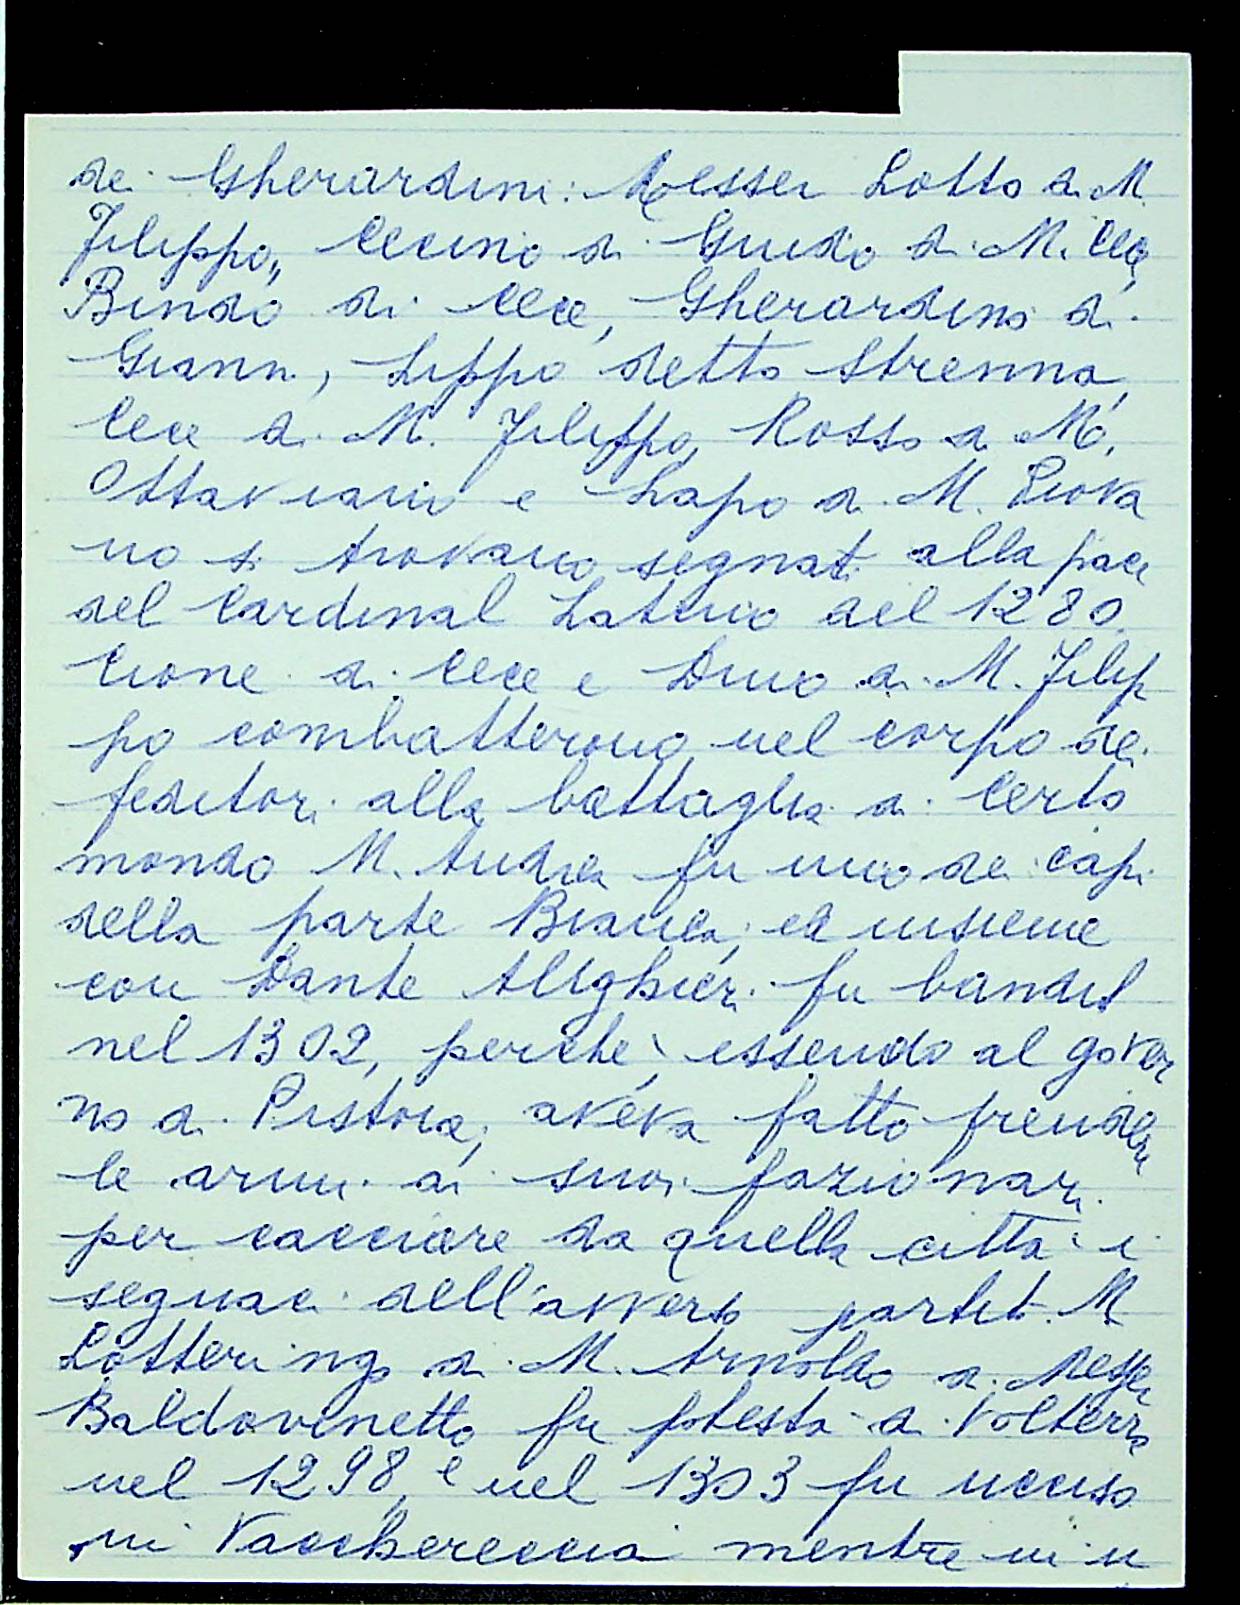 dei Gherardini: Messer Lotto di M.
Filippo, Cecino di Guido di M. Cece,
Bindo di Cece, Gherardino di
Gianni, Lippo detto Strenna,
Cece di M. Filippo, Rosso di M.
Ottaviano e Lapo di M. Piova
no si trovano segnati alla pace
del Cardinal Latino del 1280.
Cione di Cece e Dino di M. Filip
po combatterono nel corpo dei
feditori alla battaglia di Certo
mondo M. Andrea fu uno dei capi
della parte Bianca, ed insieme
con Dante Alighieri fu bandit
nel 1302, perchè, essendo al gover
no di Pistoia, aveva fatto prendere
le armi ai suoi fazionari
per cacciare da quella città i
seguaci dell'avverso partit. M
Lotteringo di M. Arnoldo di Messer
Baldovinetto fu potestà di Volterra
nel 1298, e nel 1303 fu ucciso
in Vacchereccia mentre in u